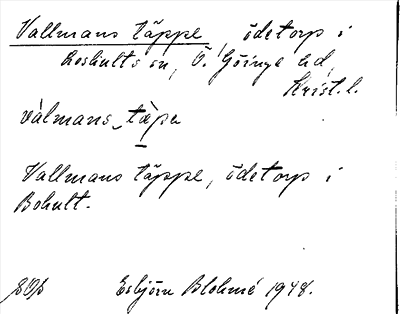 Vallmans täppe, ödetorp i
Loshults sn, Ö. Göinge hd,
Krist. l.
válmans tàpa
Vallmans täppe, ödetorp i
Bohult.
Esbjörn Blohmé 1948.